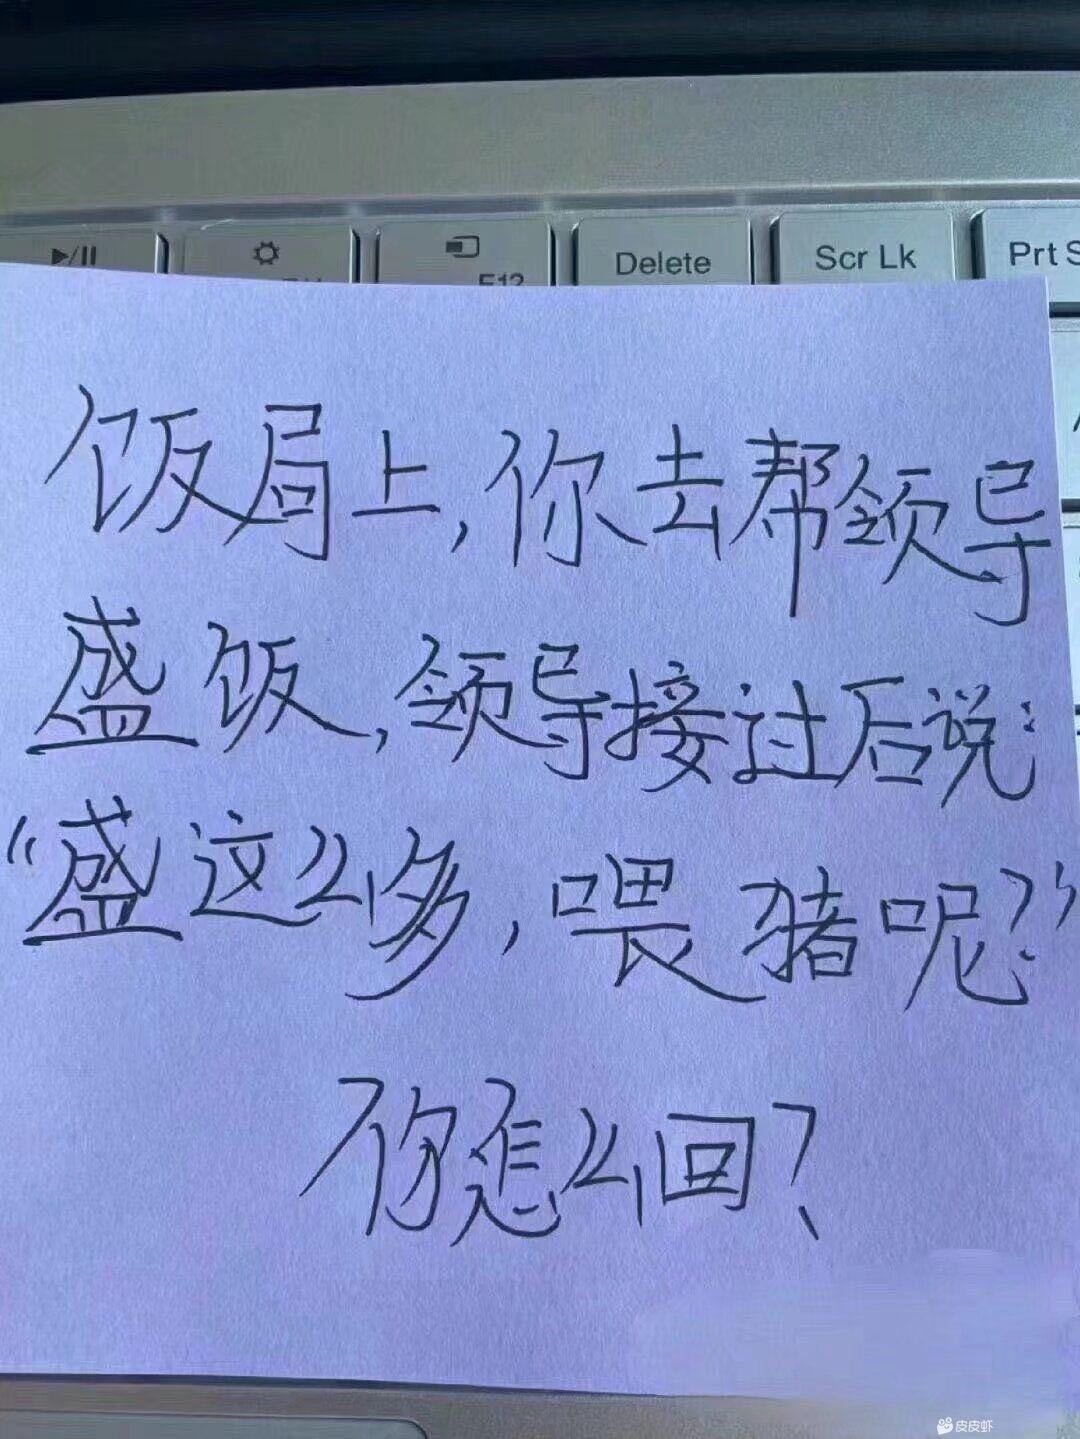 ▶/II
F12
Delete
Scr Lk
Prt S
饭局上,你去帮领导
盛饭,领导接过后说:
“盛这么多,喂猪呢?”
你怎么回?
皮皮虾